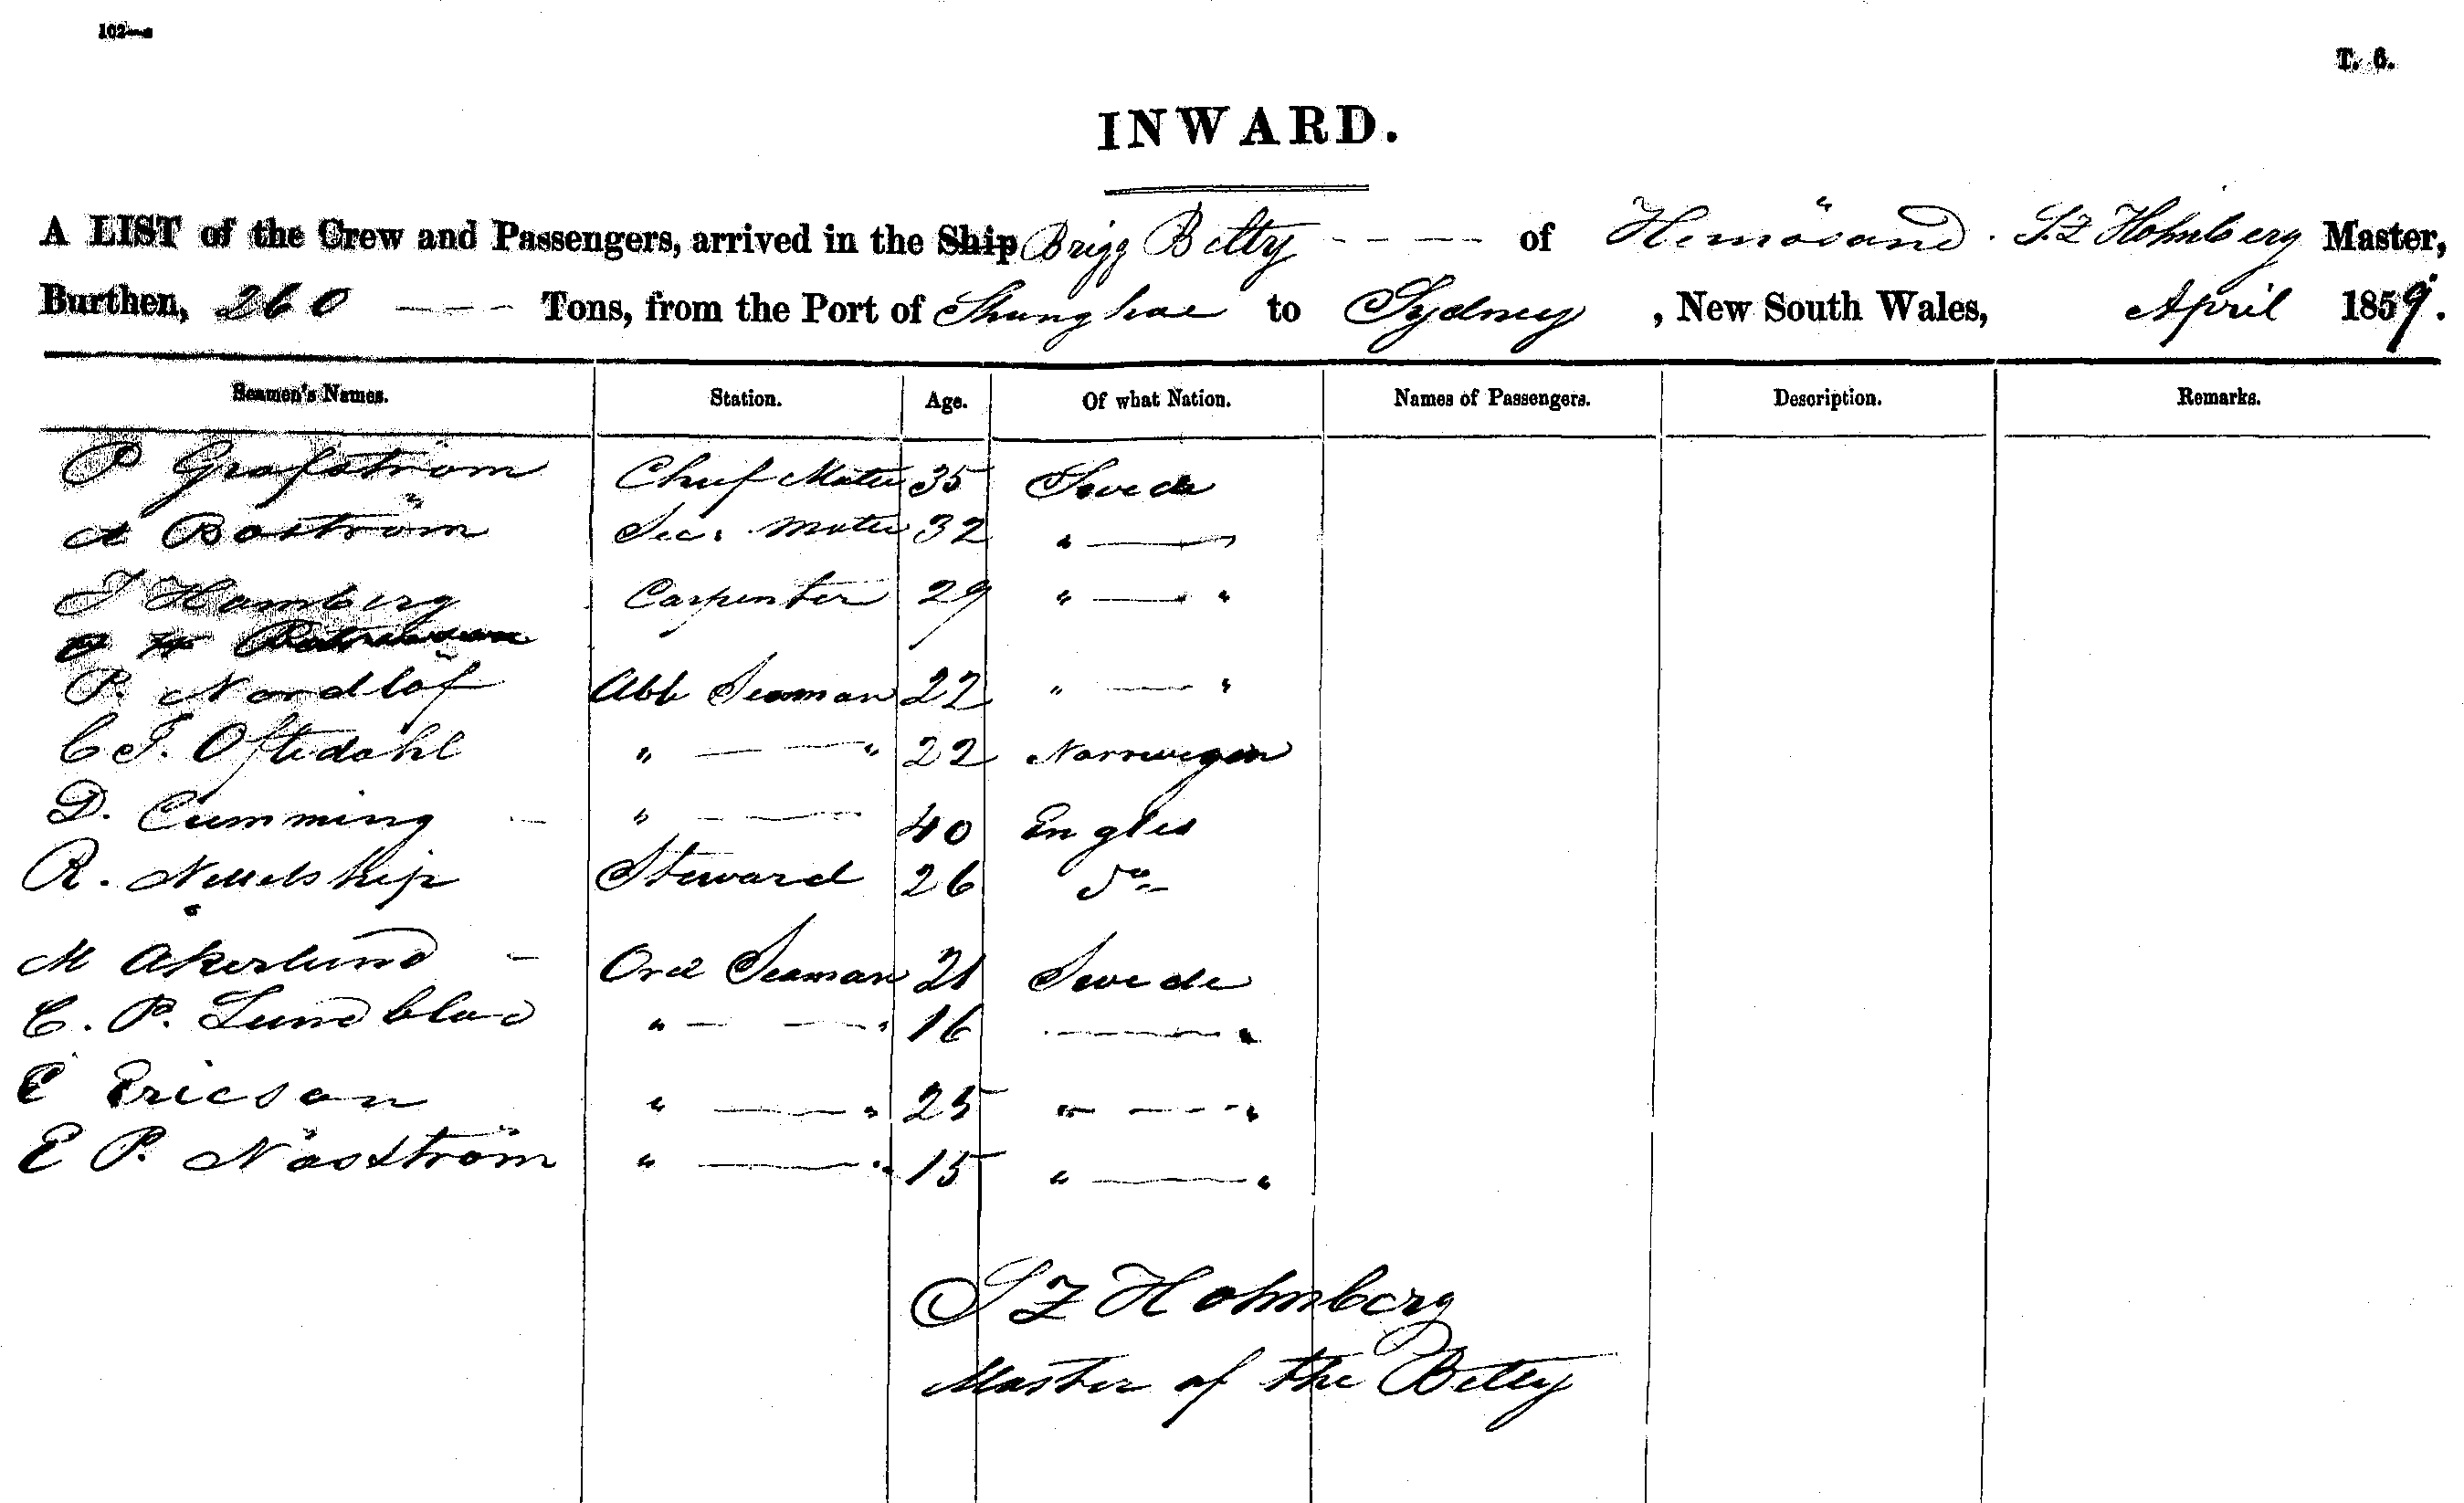 102—a
T. 6.
INWARD.
A LIST of the Crew and Passengers, arrived in the Ship Brigg Betty - - - - of Hernösand. S. Z Hohnberg Master,
Burthen, 260 - - - Tons, from the Port of Shanghae to Sydney, New South Wales, April 1859.
Seamen's Names. Station. Age. Of what Nation. Names of Passengers. Description. Remarks.
P Grafström Chief Mate 35 Swede
A Boström Sec. Mate 32 " —
J Hamberg Carpenter 29 " — "
P. Nordlöf Abb Seaman 22 " — "
C F. Oftedahl " — " 22 Norwegin
D. Cumming - " — 40 Engles
R. Steward 26 Do
M Åkerlund - Ord Seaman 21 Swede
C. P. Lundblad " — " 16 — "
E Ericson " — " 25 " — "
E P. Näsström " — " 15 " — "
S Z Hohnberg
Master of the Betty